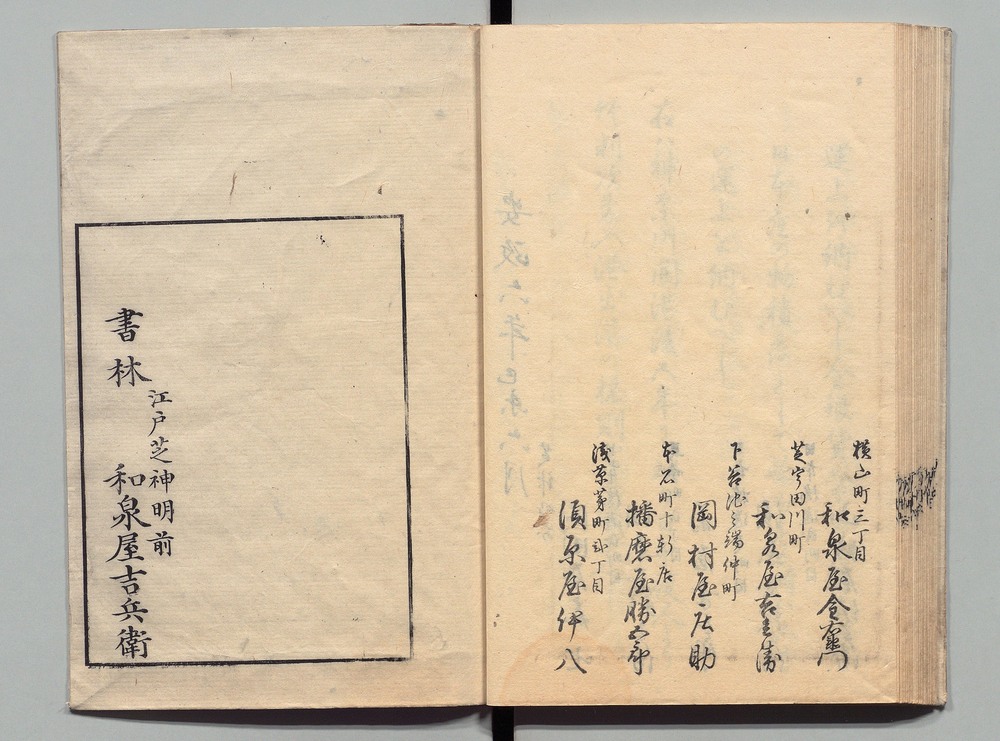 横山町三丁目
和泉屋金右衛門
芝宇田川町
和泉屋吉兵衛
下谷池之端仲町
岡村屋庄助
本石町十軒店
播磨屋勝五郎
浅草茅町弐丁目
須原屋伊八
安政六年己未六月
書林
江戸芝神明前
和泉屋吉兵衛